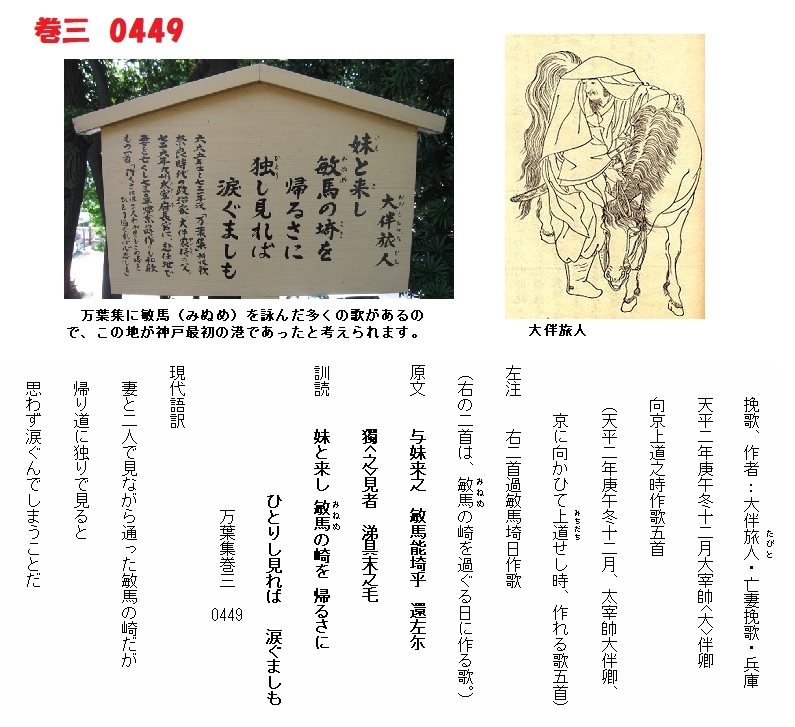 巻三 0449
大伴旅人
おおとものたびと
妹と来し
敏馬の埼を
みぬめ
帰るさに
独し見れば
涙ぐましも
万葉集に敏馬(みぬめ)を詠んだ多くの歌があるの
で、この地が神戸最初の港であったと考えられます。
大伴旅人
挽歌、作者：大伴旅人・亡妻挽歌・兵庫
たびと
天平二年庚午冬十二月大宰帥<大>伴卿
向京上道之時作歌五首
(天平二年庚午冬十二月、太宰帥大伴卿、
京に向かひて上道せし時、作れる歌五首)
みちだち
左注 右二首過敏馬埼日作歌
(右の二首は、敏馬の崎を過ぐる日に作る歌。)
みねめ
原文 与妹来之 敏馬能埼乎 還左尓
獨<之>見者 涕具末之毛
訓読 妹と来し 敏馬の崎を 帰るさに
みねめ
ひとりし見れば 涙ぐましも
万葉集巻三 0449
現代語訳
妻と二人で見ながら通った敏馬の崎だが
帰り道に独りで見ると
思わず涙ぐんでしまうことだ